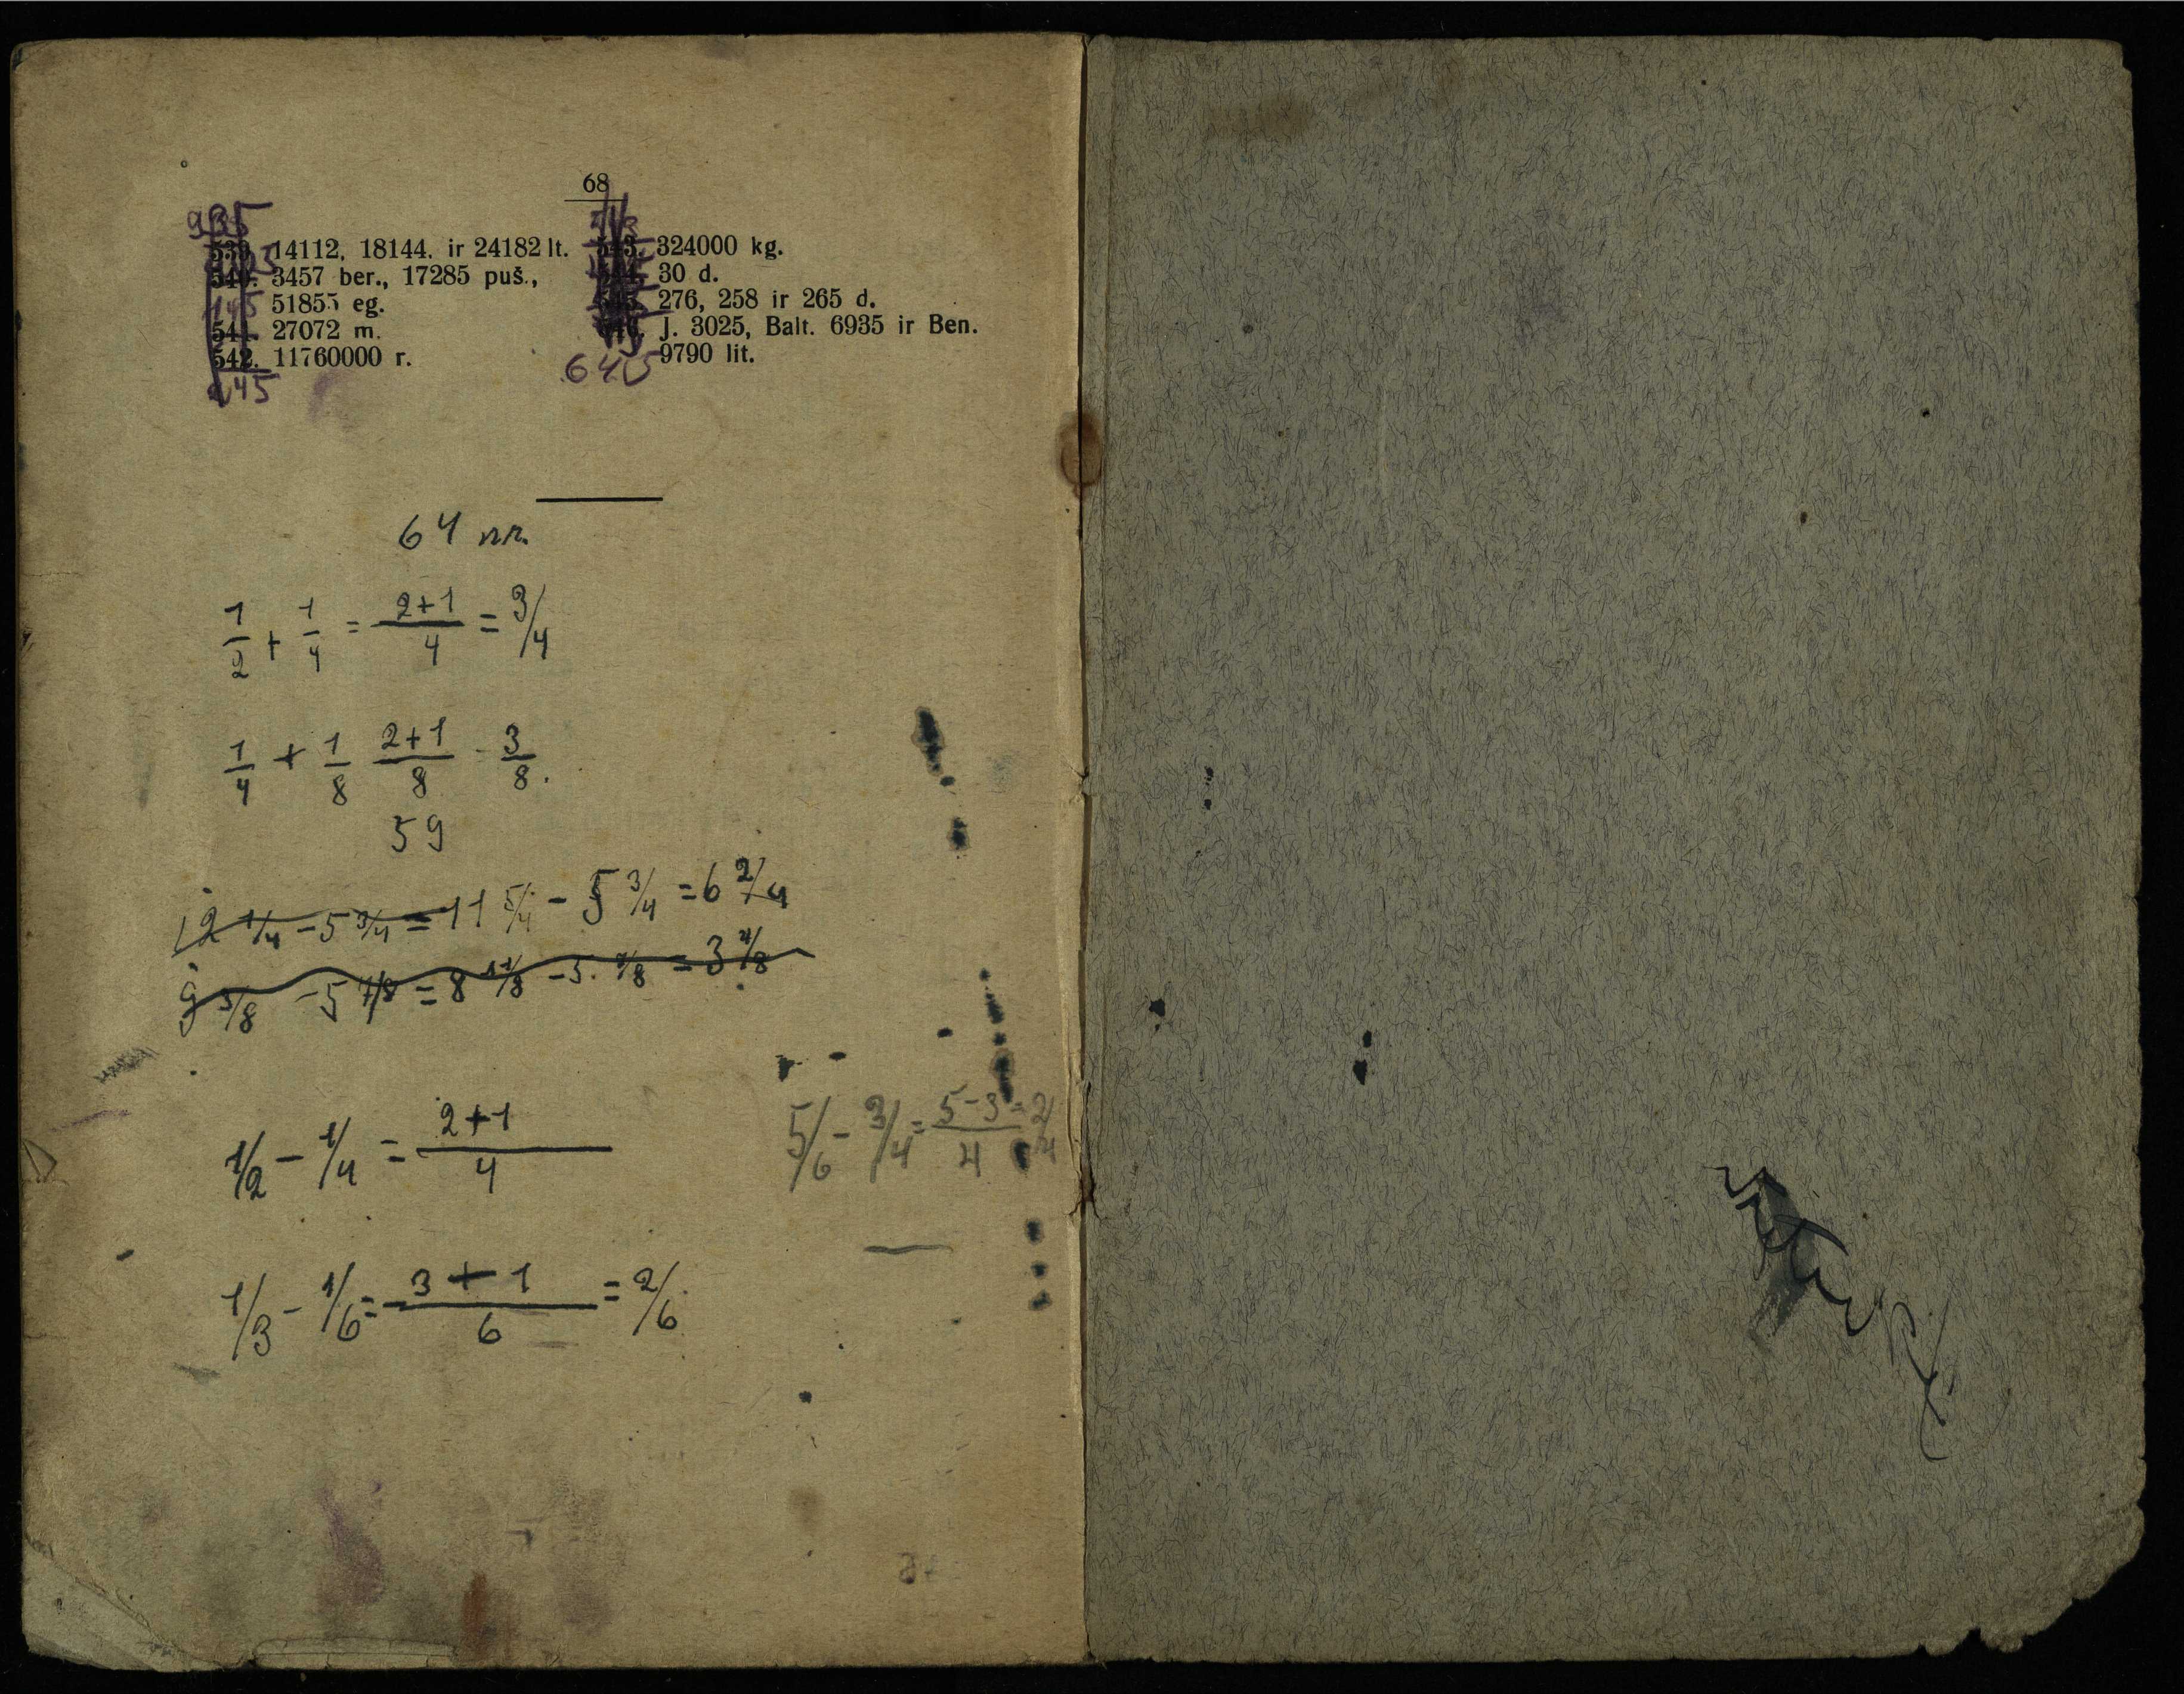 68
935
539. 14112, 18144. ir 24182 lt.
540. 3457 ber., 17285 puš.,
51855 eg.
541. 27072 m.
542. 11760000 r.
245
543. 324000 kg.
30 d.
276, 258 ir 265 d.
J. 3025, Balt. 6935 ir Ben.
9790 lit.
645
64 nr.
1/2 + 1/4 = 2+1/4 = 3/4
1/4 + 1/8 2+1/8 - 3/8.
59
12 1/4 - 5 3/4 = 11 5/4 - 5 3/4 = 6 2/4
9 3/8 - 5 7/8 = 8 11/8 - 5. 7/8 = 3 4/8
1/2 - 1/4 = 2+1/4
5/6 - 3/4 = 5-3/4 = 2/4
1/3 - 1/6 = 3+1/6 = 2/6